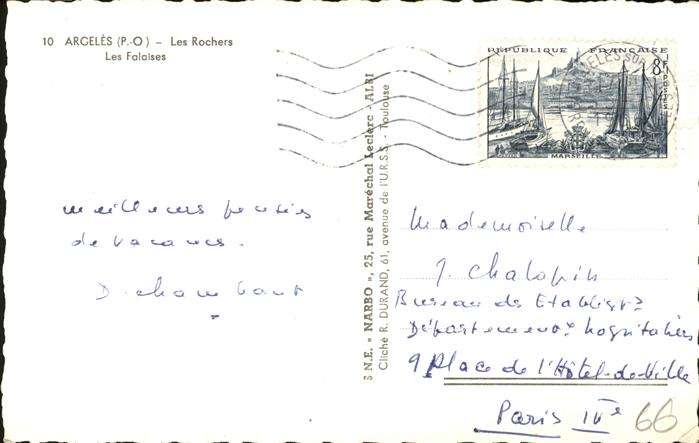 10 ARGELÈS (P.-O) – Les Rochers
Les Falaises
RÉPUBLIQUE FRANÇAISE
8F
POSTES
MARSEILLE
meilleures pensées
de vacances.
S.N.E. « NARBO », 25, rue Maréchal Leclerc - ALBI
Cliché R. DURAND, 61, avenue de l'U.R.S.S. - Toulouse
Mademoiselle
J. Chalopin
Bureau des Etablissts
Départementx hospitaliers
9 Place de l'Hôtel-de-Ville
Paris IVe
66